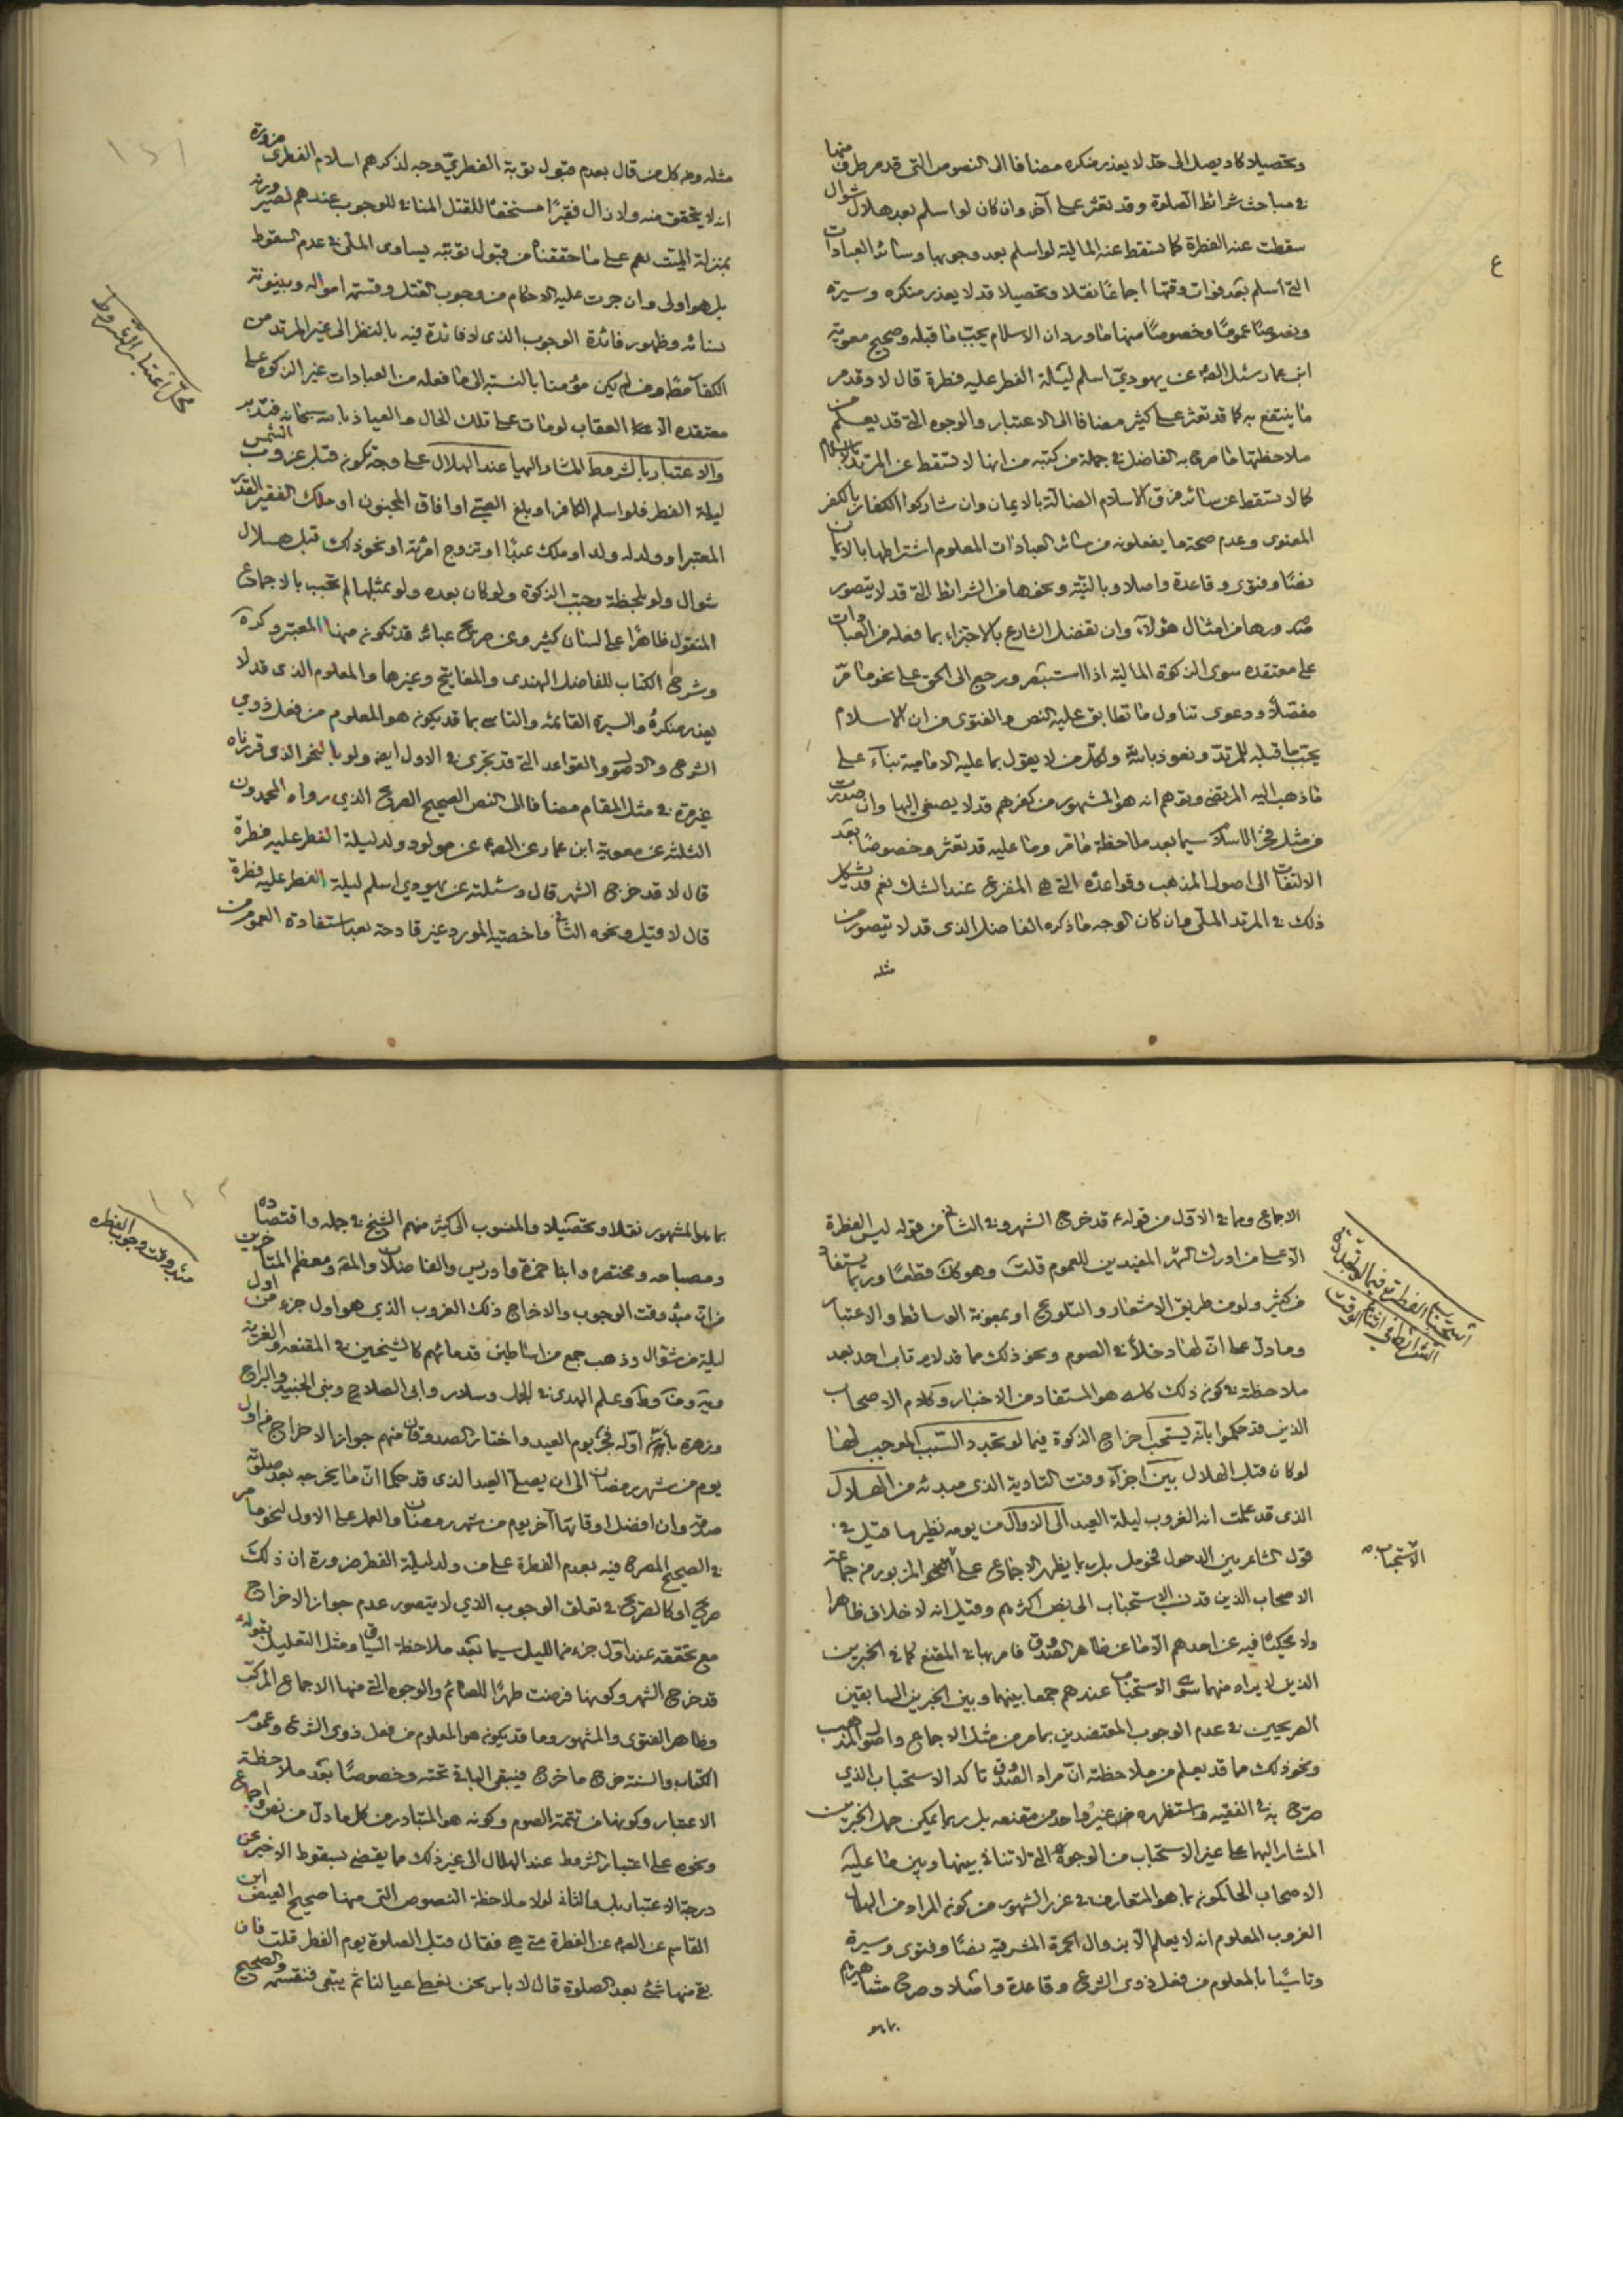 وتحصيلا كاد يصل الى حد لا يعذر منكره مضافا الى النصوص التي قد مر طرف منها
في مباحث شرائط الصلوة وقد تعثر على آخر وان كان لو اسلم بعد هلال شوال
سقطت عنه الفطرة كما تسقط عنه المالية لو اسلم بعد وجوبها وسائر العبادات
التي اسلم بعد فوات وقتها اجماعًا نقلا وتحصيلا قد لا يعذر منكره وسيرة
ونصوصًا عمومًا وخصوصًا منها ما ورد ان الاسلام يجبّ ما قبله وصحيح معوية
ابن عمار سئل الصم عن يهودي اسلم ليلة الفطر عليه فطرة قال لا وقد مر
ما ينتفع به كما قد تعثر على كثير مضافا الى الاعتبار والوجوه التي قد يعلم من
ملاحظتها ما صرح به الفاضل في جملة من كتبه من انها لا تسقط عن المرتد بالاسلام
كما لا تسقط عن سائر فرق الاسلام الضالة بالايمان وان شاركوا الكفار بالكفر
المعنوى وعدم صحة ما يفعلونه من سائر العبادات المعلوم اشتراطها بالايمان
نصًا وفتوى وقاعدة واصلا وبالنية ونحوها من الشرائط التي قد لا يتصور
صدورها من امثال هؤلاء وان تفضل الشارع بالاجتزاء بما فعله من العبادات
على معتقده سوى الزكوة المالية اذا استبصر ورجع الى الحق على نحو ما مرّ
مفصلًا ودعوى تناول ما تطابق عليه النص والفتوى من ان الاسلام
يجبّ ما قبله للمرتد ونعوذ بالله ولكل من لا يقول بما عليه الامامية بناء على
ما ذهب اليه المرتضى وتقدم انه هو المشهور من كفرهم قد لا يصغى اليها وان صدرت
من مثل فخر الاسلام سيما بعد ملاحظة ما مر وما عليه قد تعثر وخصوصًا بعد
الالتفات الى اصول المذهب وقواعده التي هي المفزع عند الشك نعم قد يشكل
ذلك في المرتد الملّي وان كان الوجه ما ذكره الفاضل الذى قد لا يتصور من
مثله
ع
١٢١
مثله وجه كل من قال بعدم قبول توبة الفطري وجه لذكرهم اسلام الفطرى ضرورة
انه لا يتحقق منه ولا زال فقيرًا مستحقًا للقتل المنافي للوجوب عندهم لصيرورته
بمنزلة الميت نعم على ما حققناه من قبول توبته يساوى الملّي في عدم السقوط
بل هو اولى وان جرت عليه الاحكام من وجوب القتل وقسمة امواله وبينونة
نسائه وظهور فائدة الوجوب الذى لا فائدة فيه بالنظر الى غير المرتد من
الكفار ومن لم يكن مؤمنا بالنسبة الى ما فعله من العبادات غير الزكوة على
معتقده الا العقاب لو مات على تلك الحال والعياذ بالله سبحانه فتدبر
والاعتبار بالشروط المشار اليها عند الهلال على وجه تكون قبل غروب الشمس
ليلة الفطر فلو اسلم الكافر او بلغ الصبي او افاق المجنون او ملك الفقير القدر
المعتبر او ولد له ولد او ملك عبدًا او تزوج امرئة او نحو ذلك قبل هلال
شوال ولو بلحظة وجبت الزكوة ولو كان بعده ولو بمثلها لم تجب بالاجماع
المنقول ظاهرًا على لسان كثير وعن صريح عبائر قد تكون منها المعتبر وكرة
وشرح الكتاب للفاضل الهندى والمفاتيح وغيرها والمعلوم الذى قد لا
يعذر منكره والسيرة القائمة والتاسي بما قد يكون هو المعلوم من فعل ذوي
الشرع والاصول والقواعد التي قد تجرى في الاول ايضا ولو بالنحو الذى قررناه
غير مرة في مثل المقام مضافا الى النص الصحيح الصريح الذي رواه المحمدون
الثلثة عن معوية ابن عمار عن الصم عن مولود ولد ليلة الفطر عليه فطرة
قال لا قد خرج الشهر قال وسئلته عن يهودي اسلم ليلة الفطر عليه فطرة
قال لا قيل ونحوه الثاني واخصية المورد غير قادحة بعد استفادة العموم من
محل اعتبار الشروط
الاجماع وما في الاول من قوله ع قد خرج الشهر وفي الثاني من قوله ليس الفطرة
الا على من ادرك الشهر المفيدين للعموم قلت وهو كك قطعًا وربما يستفاد
من كثير ولو من طريق الاشعار والتلويح او بمعونة الوسائط والاعتبار
وما دل على ان لها دخلاً في الصوم ونحو ذلك مما قد لا يرتاب احد بعد
ملاحظته في كون ذلك كله هو المستفاد من الاخبار وكلام الاصحاب
الذين قد حكموا بانه يستحب اخراج الزكوة فيما لو تجدد السبب الموجب لها
لو كان قبل الهلال بين اجزاء وقت التادية الذى مبدئه من الهلال
الذى قد علمت انه الغروب ليلة العيد الى الزوال من يومه نظير ما قيل في
قول الشاعر بين الدحول فحومل بل ربما يظهر الاجماع على النحو المزبور من جماعة
الاصحاب الذين قد نسب الاستحباب الى نص اكثرهم وقيل انه لا خلاف ظاهرا
ولا محكيًا فيه عن احدهم الا ما عن ظاهر الصدوق فامر بها في المقنع كما في الخبرين
الذين لا يراد منهما سوى الاستحباب عندهم جمعا بينهما وبين الخبرين السابقين
الصريحين في عدم الوجوب المعتضدين بما مر من مثل الاجماع واصول المذهب
ونحو ذلك مما قد يعلم من ملاحظته ان مراد الصدوق تاكد الاستحباب الذي
صرح به في الفقيه واستظهره غير واحد من مقنعه بل ربما يمكن حمل الخبرين
المشار اليها على غير الاستحباب من الوجوه التي لا تنافي بينها وبين ما عليه
الاصحاب الحاكمون بما هو المتعارف في غرر الشهور من كون المراد من الهلال
الغروب المعلوم انه لا يعلم الا بزوال الحمرة المشرقية نصًا وفتوى وسيرة
وتاسّيا بالمعلوم من فعل ذوى الشرع وقاعدة واصلا وصرح مشاهيرهم
بما هو
استحباب الفطرة فيما لو تجددت
الشرائط في اثناء الوقت
الاستحباب ص
١٢٢
بما هو المشهور نقلا وتحصيلا والمنسوب الى كثير منهم الشيخ في جمله واقتصاده
ومصباحه ومختصره وابنا حمزة وادريس والفاضلان والمقد ومعظم المتاخرين
من ان مبدء وقت الوجوب والاخراج ذلك الغروب الذي هو اول جزء من اول
ليلة من شوال وذهب جمع من اساطين قدمائهم كالشيخين في المقنعه والغرية
وية وف وط وعلم الهدى في الجمل وسلار وابى الصلاح وبنى الجنيد والبراج
وزهرة بأن اوله فجر يوم العيد واختار الصدوقان منهم جواز الاخراج من اول
يوم من شهر رمضان الى ان يصلى العيد الذى قد حكما ان ما يخرجه بعد صلوته
صدقة وان افضل اوقاتها آخر يوم من شهر رمضان والعمل على الاول لنحو ما مر
في الصحيح المصرح فيه بعدم الفطرة على من ولد ليلة الفطر ضرورة ان ذلك
صريح او كالصريح في تعلق الوجوب الذي لا يتصور عدم جواز الاخراج
مع تحققه عند اول جزء من الليل سيما بعد ملاحظة السياق ومثل التعليل بقوله
قد خرج الشهر وكونها فرضت طهرًا للصائم والوجوه التي منها الاجماع المركب
وظاهر الفتوى والمشهور وما قد يكون هو المعلوم من فعل ذوى الشرع وعموم
الكتاب والسنة خرج ما خرج فيبقى الباقي تحته وخصوصًا بعد ملاحظة
الاعتبار وكونها من تتمة الصوم وكونه هو المتبادر من كل ما دل من نص واجماع
ونحوه على اعتبار الشروط عند الهلال الى غير ذلك مما يقضى بسقوط الاخير عن
درجة الاعتبار بل والثاني لولا ملاحظة النصوص التي منها صحيح العيص ابن
القاسم عن الصم عن الفطرة متى هي فقال قبل الصلوة يوم الفطر قلت فان
بقى منها شئ بعد الصلوة قال لا باس نحن نعطى عيالنا ثم يبقى فنقسمه والصحيح
مبدء وقت وجوب الفطره